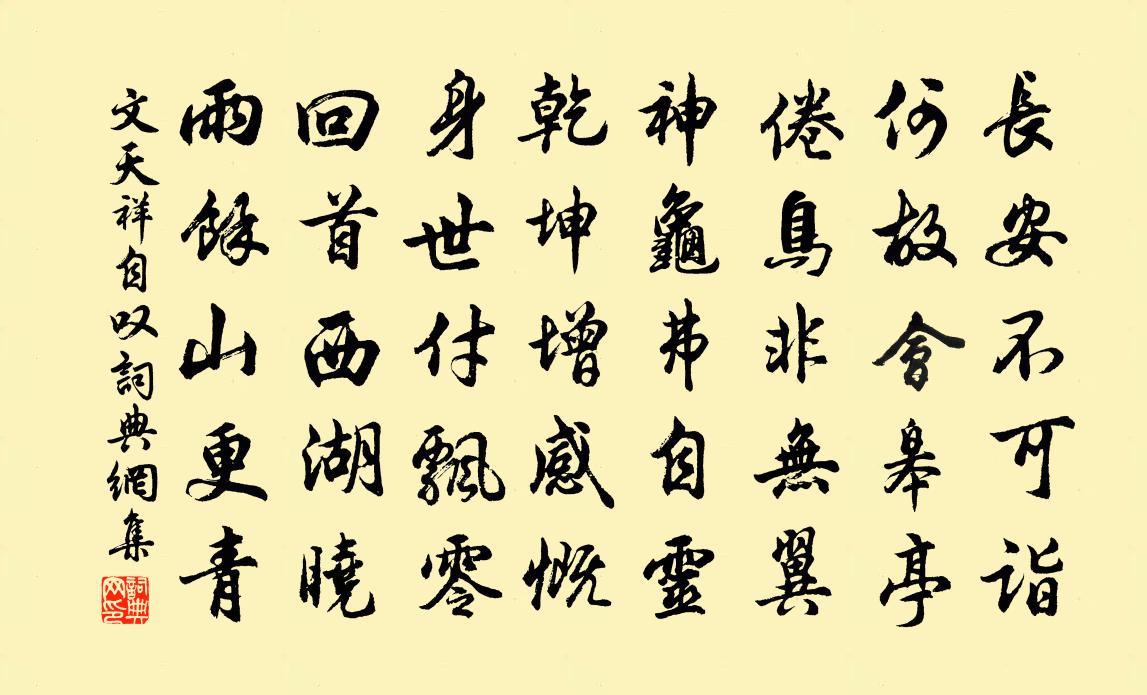 長安不可詣
何故會皋亭
倦鳥非無翼
神龜弗自靈
乾坤增感慨
身世付飄零
回首西湖曉
雨餘山更青
文天祥自叹詞典網集
詞典網印